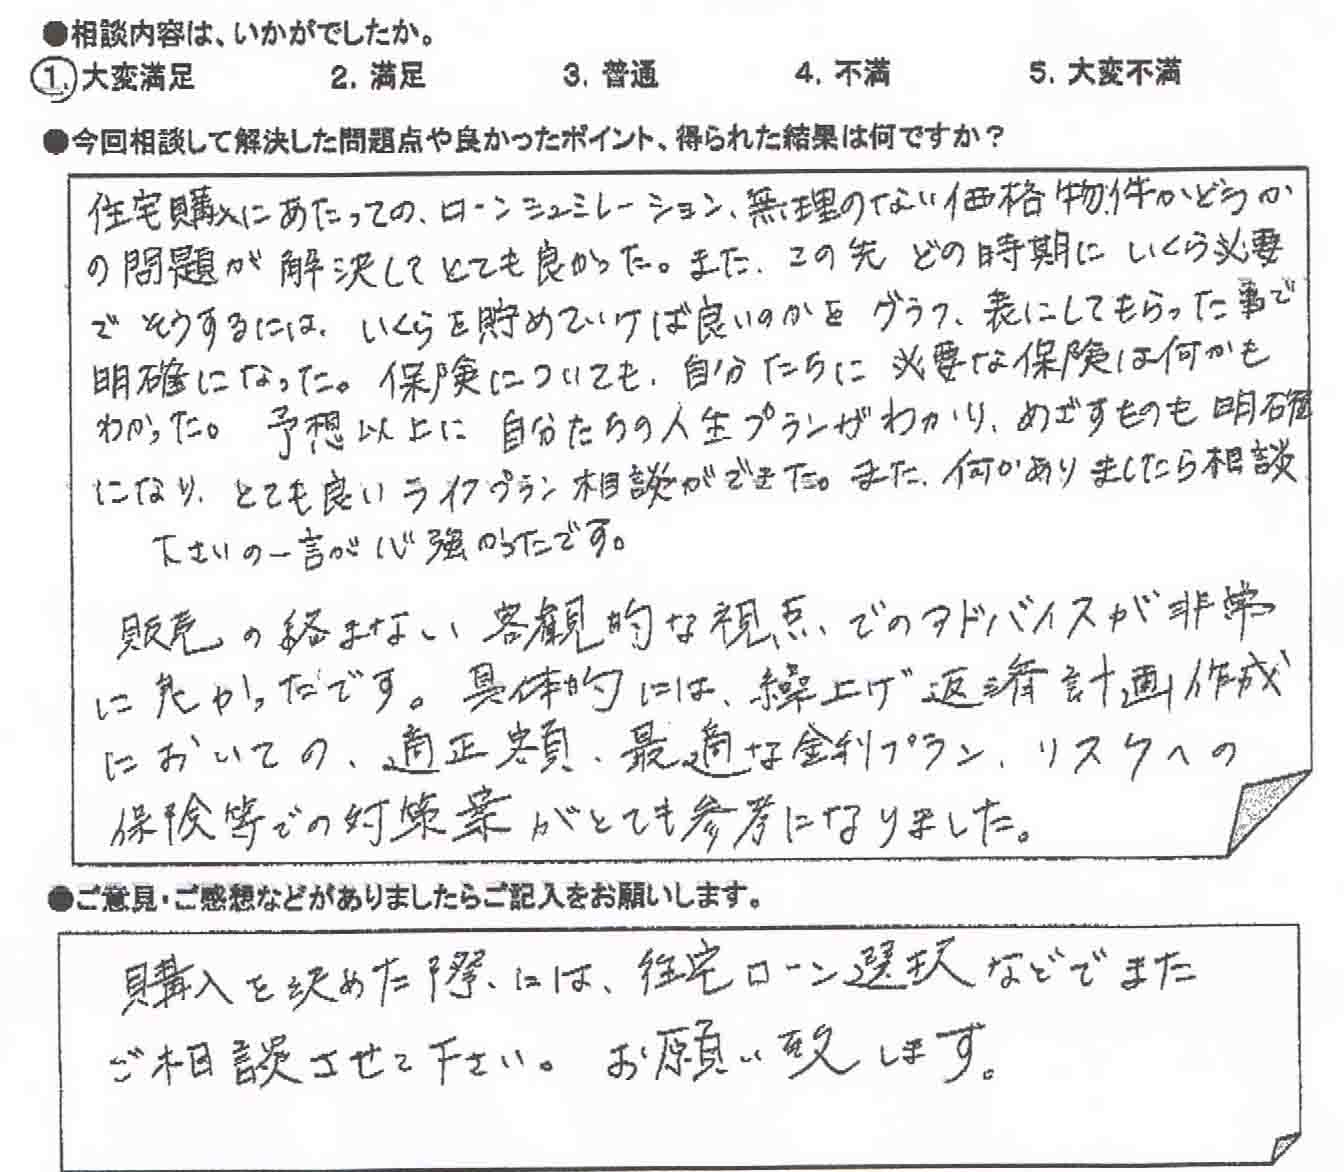 ●相談内容は、いかがでしたか。
1. 大変満足 2. 満足 3. 普通 4. 不満 5. 大変不満
●今回相談して解決した問題点や良かったポイント、得られた結果は何ですか？
住宅購入にあたっての、ローンシュミレーション、無理のない価格物件かどうか
の問題が解決してとても良かった。また、この先 どの時期に いくら必要
で そうするには、いくらを貯めていけば良いのかを グラフ、表にしてもらった事で
明確になった。保険についても、自分たちに 必要な保険は何かも
わかった。 予想以上に 自分たちの人生プランがわかり、めざすものも 明確
になり、とても良い ライフプラン 相談ができた。また、何かありましたら相談
下さいの一言が心強かったです。
販売の絡まない 客観的な視点、でのアドバイスが 非常
に良かったです。具体的には、繰上げ返済計画作成
においての、適正額、最適な金利プラン、リスクへの
保険等での対策案がとても参考になりました。
●ご意見・ご感想などがありましたらご記入をお願いします。
購入を決めた際、には、住宅ローン選択などでまた
ご相談させて下さい。お願い致します。